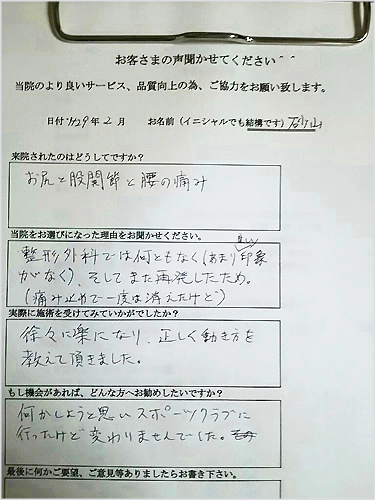 お客さまの声聞かせてください＾＾
当院のより良いサービス、品質向上の為、ご協力をお願い致します。
日付 H29年 2月 お名前（イニシャルでも結構です）
来院されたのはどうしてですか？
お尻と股関節と腰の痛み
当院をお選びになった理由をお聞かせください。
良い
整形外科では何ともなく（あまり印象
がなく）、そしてまた再発したため。
（痛み止めで一度は消えたけど）
実際に施術を受けてみていかがでしたか？
徐々に楽になり、正しく動き方を
教えて頂きました。
もし機会があれば、どんな方へお勧めしたいですか？
何かしようと思いスポーツクラブに
行ったけど変わりませんでした。
最後に何かご要望、ご意見等ありましたらお書き下さい。